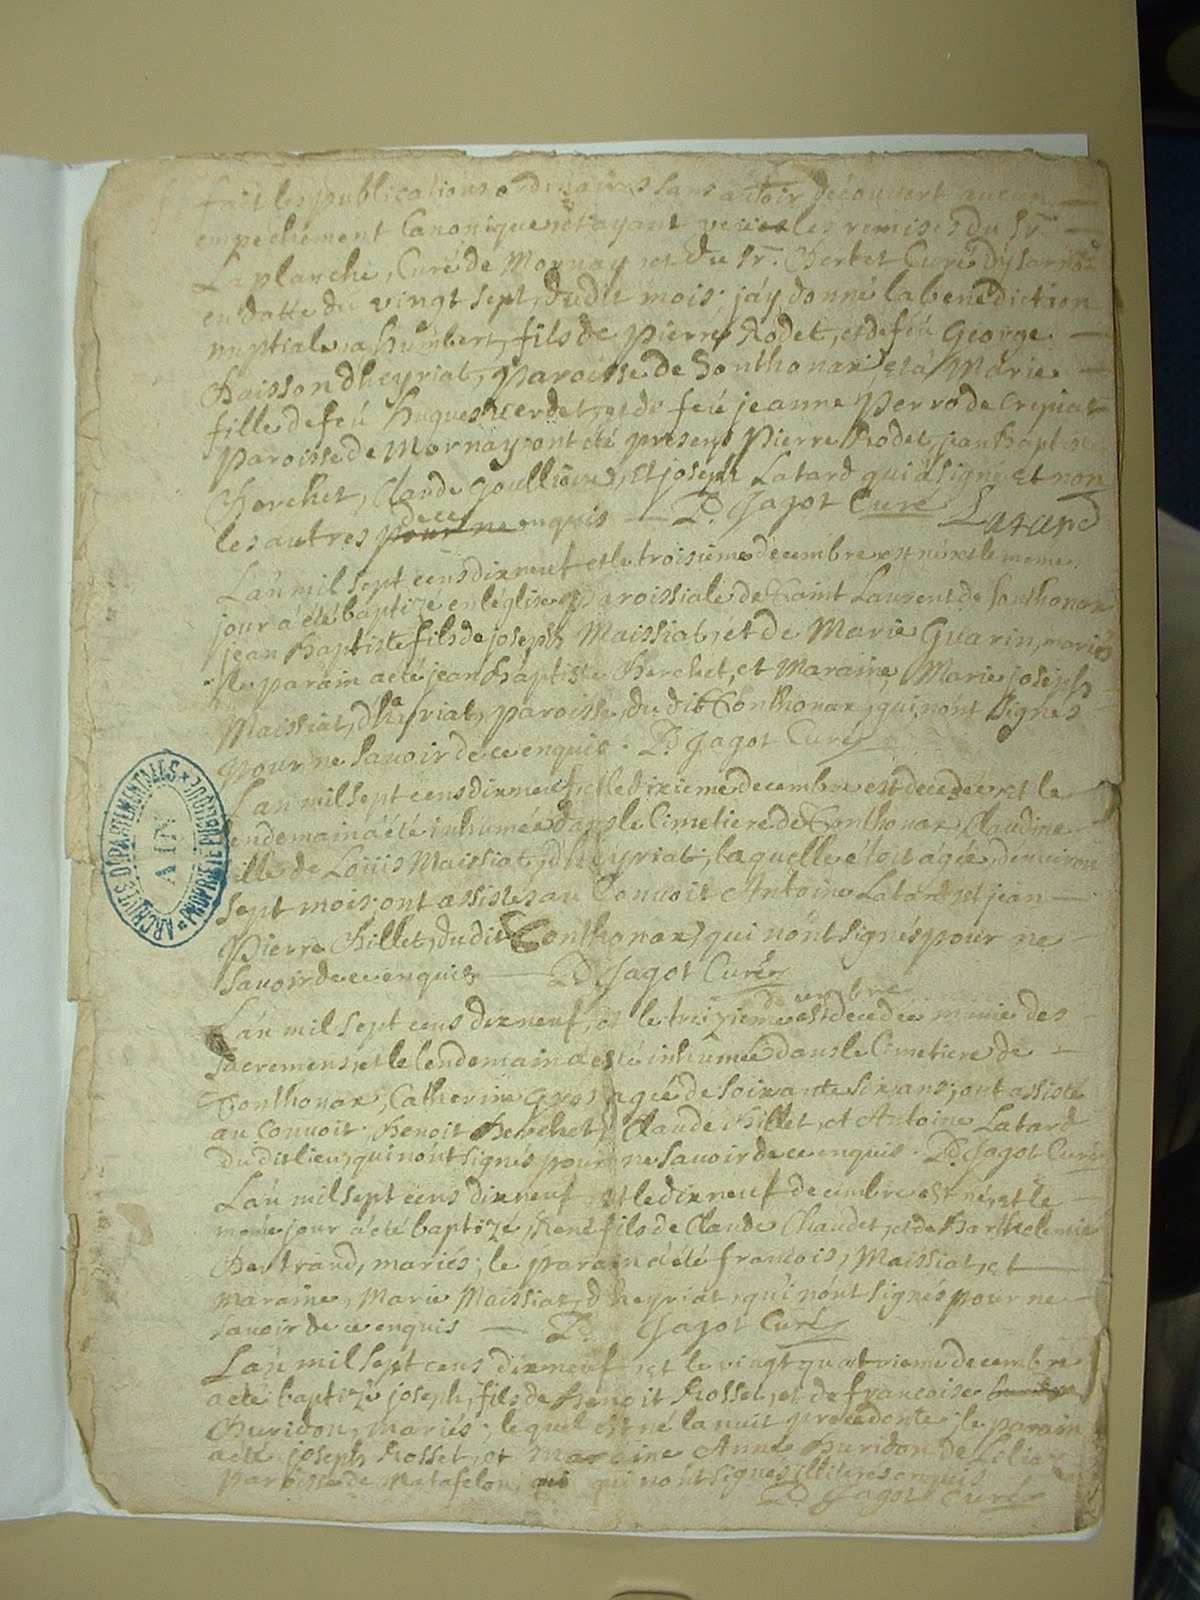 fait les publications ordinaires sans avoir découvert aucun
empechement Canonique et ayant veu les remises du Sr
Laplanche, Curé de Mornay, et du Sr. Curé
en datte du vingt sept dudit mois, j'ay donné la benediction
nuptiale a humbert, fils de Pierre Rodet, et de feü George
Buisson dheyriat, paroisse de Sonthonax, et à Marie
fille de feü hugues verdet, et de feü jeanne Perro de Crépiat
paroisse de Mornay, ont été presens Pierre Rodet, jean baptiste
berchet, Claude Goullioux, et joseph Latard qui a signé et non
les autres pour ne de ce enquis — D. Jagot Curé Latard
L'an mil sept cens dix neuf et le troisieme decembre est né et le meme
jour a été baptizé en léglise paroissiale de Saint Laurent de Sonthonax
jean baptiste fils de joseph Maissiat, et de Marie Guarin, mariés
le parain a eté jean baptiste berchet, et Maraine, Marie joseph
Maissiat, dheyriat, paroisse, du dit Sonthonax, qui n'ont signés
pour ne Savoir de ce enquis. D. Jagot Curé
L'an mil sept cens dix neuf, et le dixieme decembre est decedée, et le
lendemain a été inhumée dans le Cimetiere de Sonthonax Claudine
fille de Loüis Maissiat, dheyriat, laquelle étoit agée, denviron
Sept mois, ont assistés au Convoit Antoine Latard, et jean
Pierre billet, du dit Sonthonax, qui n'ont signés pour ne
Savoir de ce enquis — D. Jagot Curé
decembre
L'an mil sept cens dix neuf, et le treizieme est decedée munie des
Sacremens, et le lendemain a esté inhumée dans le Cimetiere de
Sonthonax, Catherine gros agée de soixante six ans, ont assisté
au Convoit, benoit berchet, Claude billet, et Antoine Latard
du dit lieu, qui n'ont signés pour ne Savoir de ce enquis. D. Jagot Curé
L'an mil sept cens dix neuf, et le dix neuf decembre est né, et le
meme jour a été baptizé, René fils de Claude Chaudet, et de barthelemie
bertrand, mariés, le parain a été francois, Maissiat, et
maraine, Marie Maissiat, dheyriat, qui n'ont signés pour ne
Savoir de ce enquis — D. Jagot Curé
L'an mil sept cens dix neuf, et le vingt quatrieme decembre
a eté baptizé joseph, fils de benoit Rosset, et de francoise
buridon, mariés, lequel est né la nuit precedente, le parain
a eté joseph Rosset, et Maraine Anne buridon de
paroisse de Matafelon, qui n'ont signés illiteres enquis
D. Jagot Curé
ARCHIVES DÉPARTEMENTALES
AIN
PROPRIÉTÉ PUBLIQUE